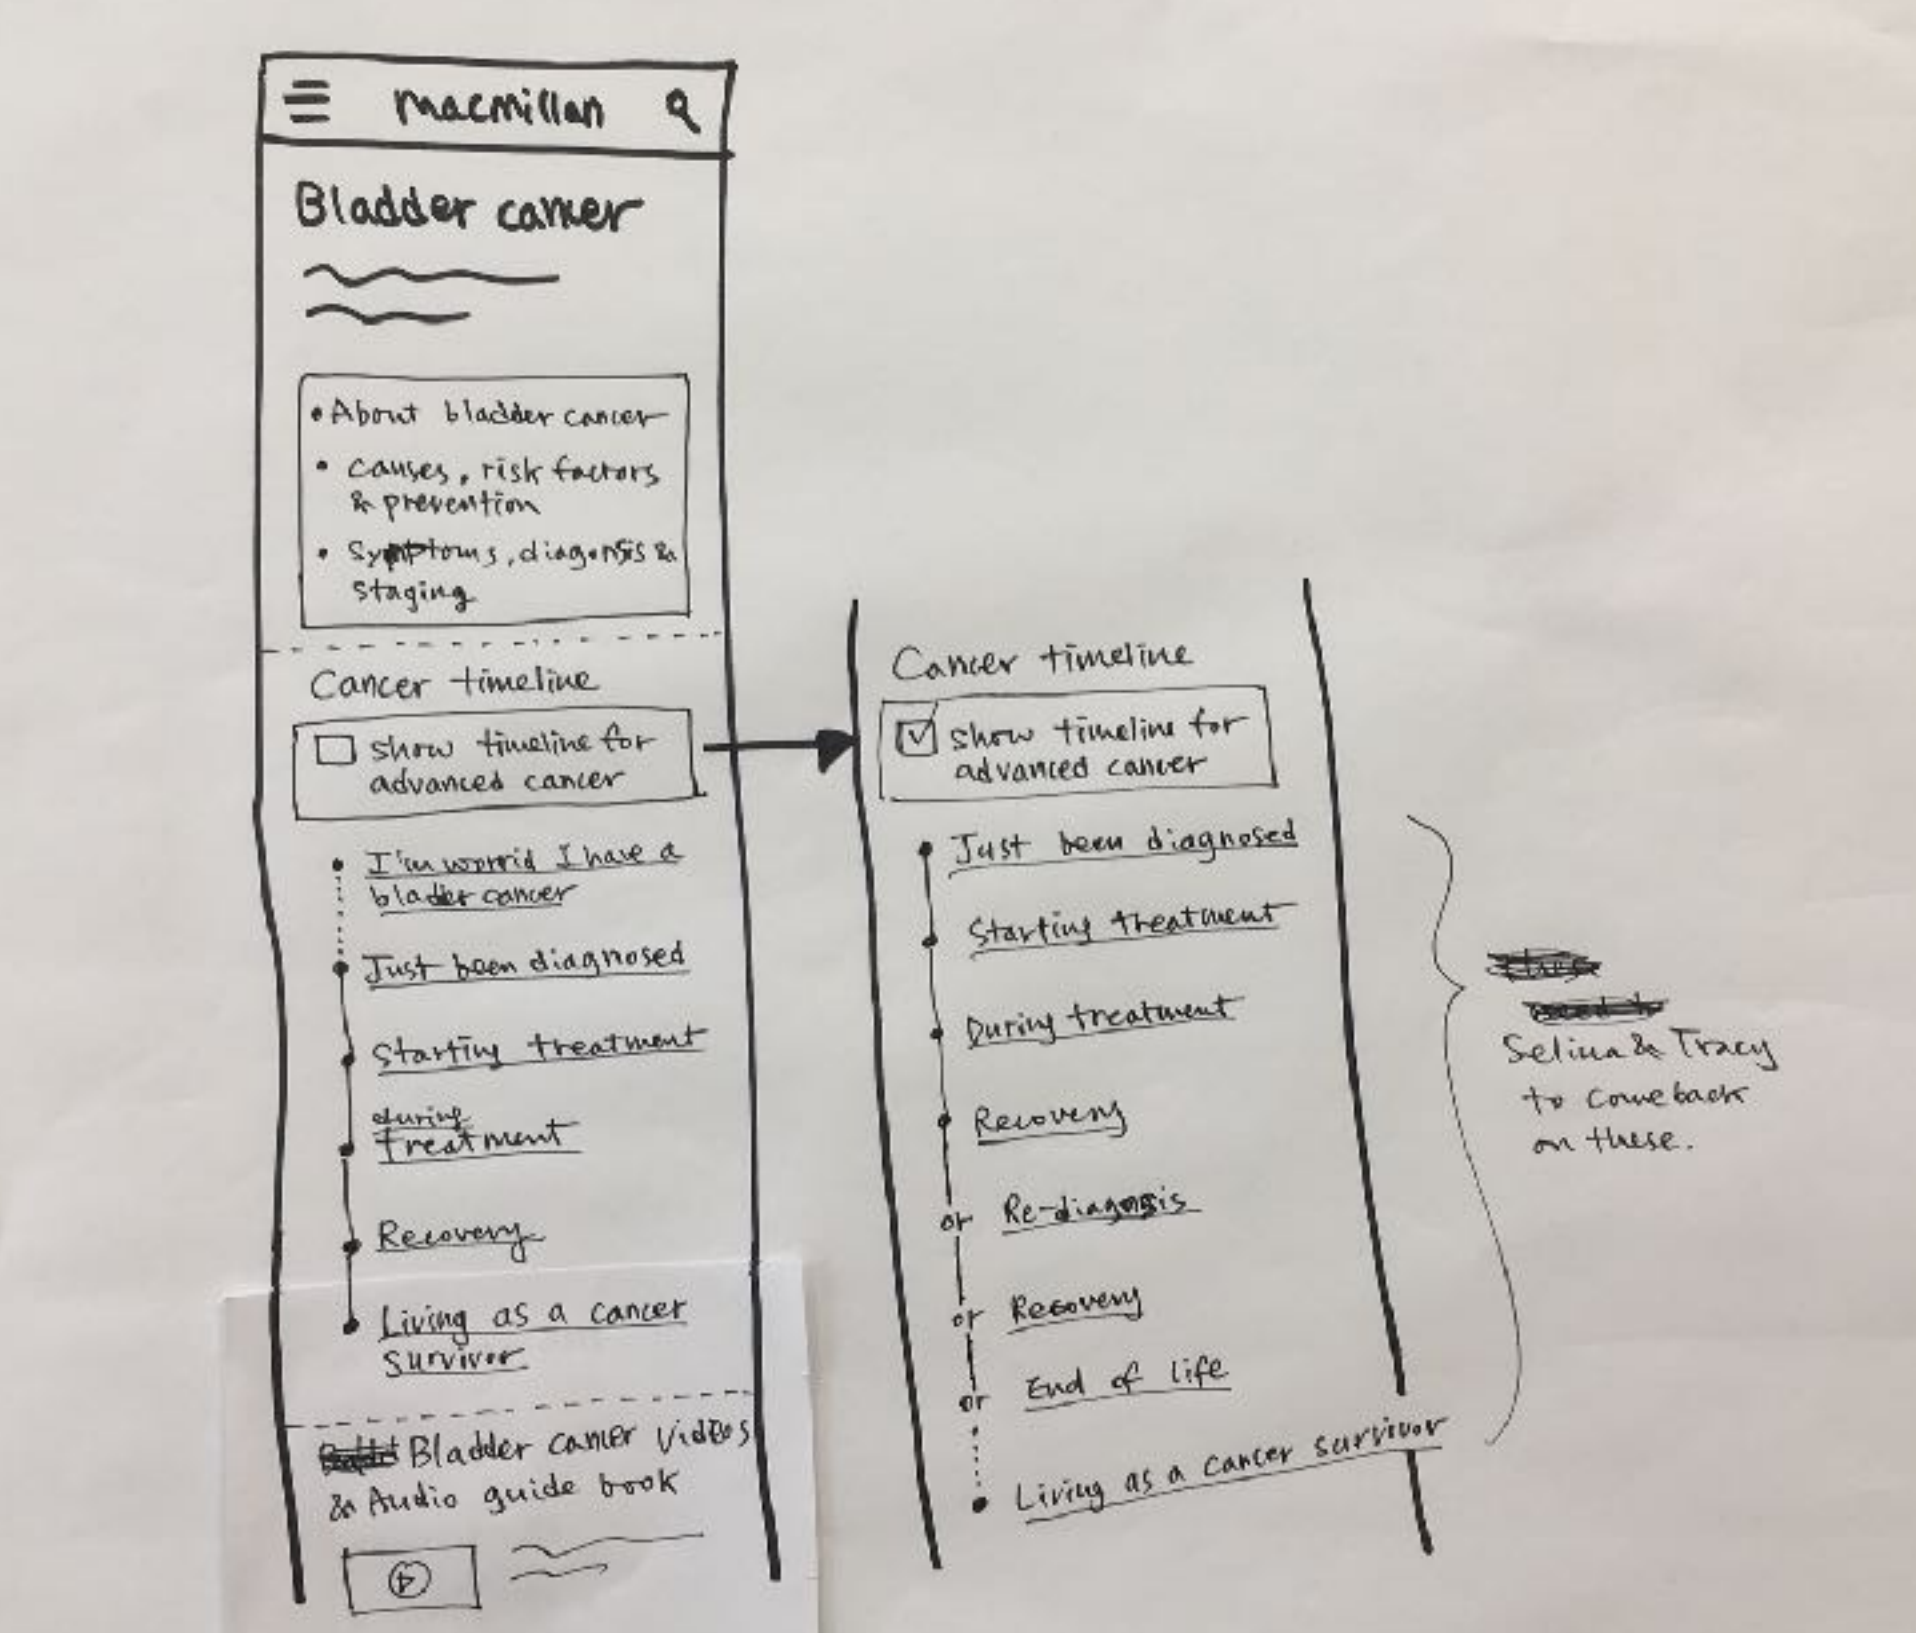 macmillan
Bladder cancer
• About bladder cancer
• causes, risk factors
& prevention
• Symptoms, diagonsis &
staging
Cancer timeline
show timeline for
advanced cancer
I'm worrid I have a
bladder cancer
Just been diagnosed
Starting treatment
during
treatment
Recovery
Living as a cancer
survivor
Bladder cancer Videos
& Audio guide book
Cancer timeline
show timeline for
advanced cancer
Just been diagnosed
Starting treatment
During treatment
Recovery
or Re-diagnosis
or Recovery
or End of life
Living as a cancer survivor
Selina & Tracy
to comeback
on these.